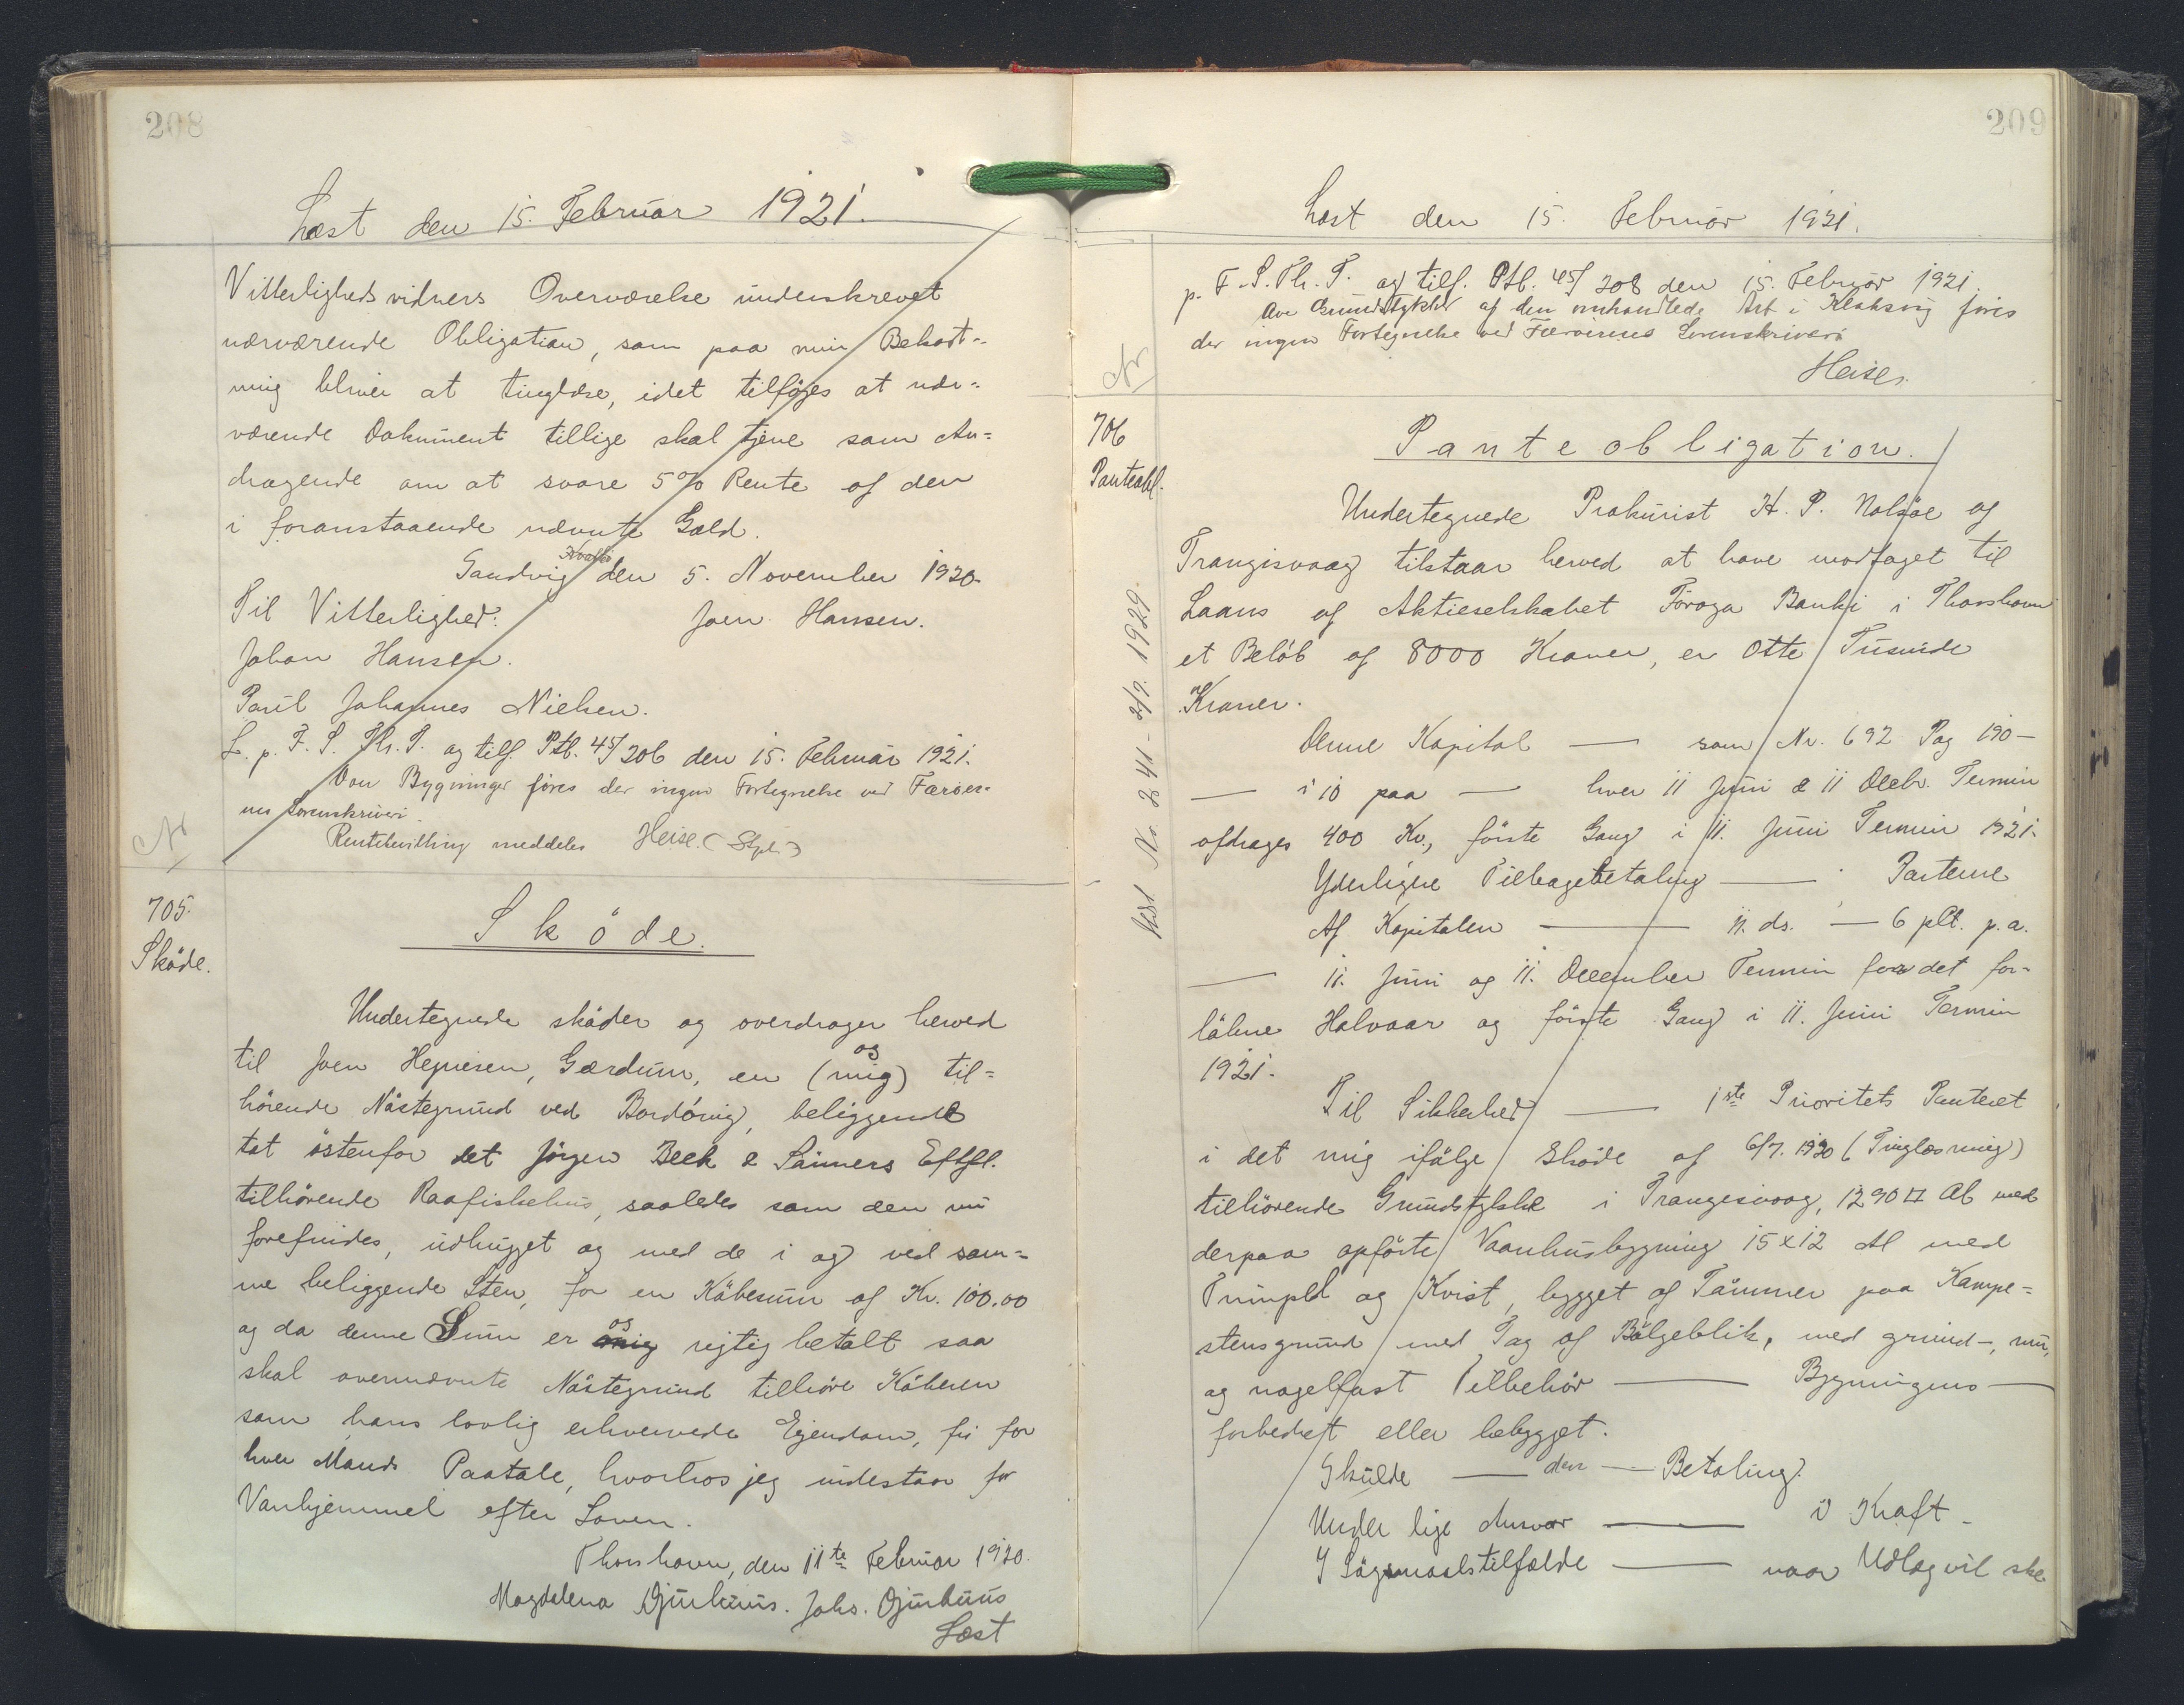 208
Læst den 15. Februar 1921.
Vitterlighedsvidners Overværelse underskrevet
nærværende Obligation, som paa min Bekost-
ning bliver at tinglæse, idet tilföjes at nær-
værende Dokument tillige skal tjene som An-
dragende om at svare 5% Rente af den
i foranstaaende nævnte Gæld.
Sandvig den 5. November 1920.
Til Vitterlighed: Joen Hansen.
Johan Hansen.
Poul Johannes Nielsen.
L. p. F. S. Th. T. og tilf. Ptb. 45/206 den 15. Februar 1921.
Over Bygninger föres der ingen Fortegnelse ved Færöer-
nes Sorenskriveri.
Rentebevilling meddeles Heise. (Stpl.)
Nr
705.
Sköde.
Sköde.
Undertegnede sköder og overdrager herved
til Joen Hejnesen, Gærdum, en (mig) os til-
hörende Nöstegrund ved Bordövig, beliggende
tæt östenfor det Jörgen Beck & Sönners Eftfl.
tilhörende Raafiskehus, saaledes som den nu
forefindes, udhugget og med de i og ved sam-
me beliggende Sten, for en Köbesum af Kr. 100.00
og da denne Sum er mig os rigtig betalt saa
skal ovennævnte Nöstegrund tilhöre Köberen
som hans lovlig erhvervede Ejendom, fri for
hver Mands Paatale, hvorhos jeg indestaar for
Vanhjemmel efter Loven.
Thorshavn, den 11te Februar 1920.
Magdalena Djurhuus. Johs. Djurhuus
Læst
209
Læst den 15. Februar 1921.
p. F. S. Th. T. og tilf. Ptb. 45/208 den 15. Februar 1921.
Over Grundstykker af den omhandlede Art i Klaksvig föres
der ingen Fortegnelse ved Færöernes Sorenskriveri
Heise.
Nr
706
Panteobl.
Panteobligation.
Undertegnede Prokurist H. P. Nolsöe af
Trangisvaag tilstaar herved at have modtaget til
Laans af Aktieselskabet Föroya Banki i Thorshavn
et Belöb af 8000 Kroner, er Otte Tusinde
Kroner.
Denne Kapital — som Nr. 692 Pag 190 —
— i 10 paa — hver 11 Juni & 11 Decbr. Termin
afdrages 400 Kr., förste Gang i 11. Juni Termin 1921.
Yderligere Tilbagebetaling — Parterne
Af Kapitalen — 11. ds. — 6 pCt. p. a.
— 11. Juni og 11. December Termin for det for-
löbne Halvaar og förste Gang i 11. Juni Termin
1921.
Til Sikkerhed — 1ste Prioritets Panteret
i det mig ifölge Sköde af 6/7. 1920 (Tinglæsning)
tilhörende Grundstykke i Trangesvaag, 1290 □ Al med
derpaa opförte Vaanhusbygning 15x12 Al med
og Kvist, bygget af Tömmer paa Kampe-
stensgrund med Tag af Bölgeblik, med grund-, mur,
og nagelfast Tilbehör — Bygningens —
forbedret eller bebygget.
Skulde — den — Betaling.
Under lige Ansvar — i Kraft —
I Sögsmaalstilfælde — naar Udlæg vil ske
læst Nr. 241 - 2/7. 1929.